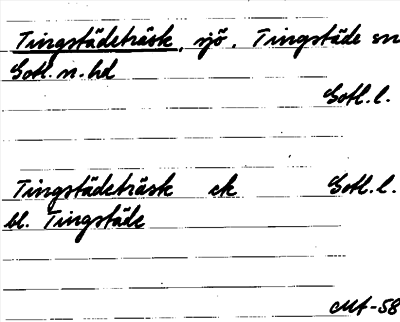 Tingstädeträsk, sjö, Tingstäde sn
Gotl. n. hd
Gotl. l.
Tingstädeträsk ek Gotl. l.
bl. Tingstäde